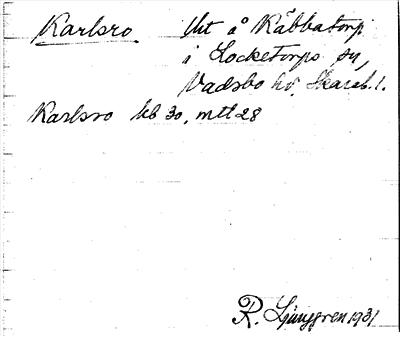 Karlsro Äbt å Käbbatorp
i Locketorps sn,
Vadsbo hd, Skarab. l.
Karlsro kb 30, mtl 28
R. Ljunggren 1931